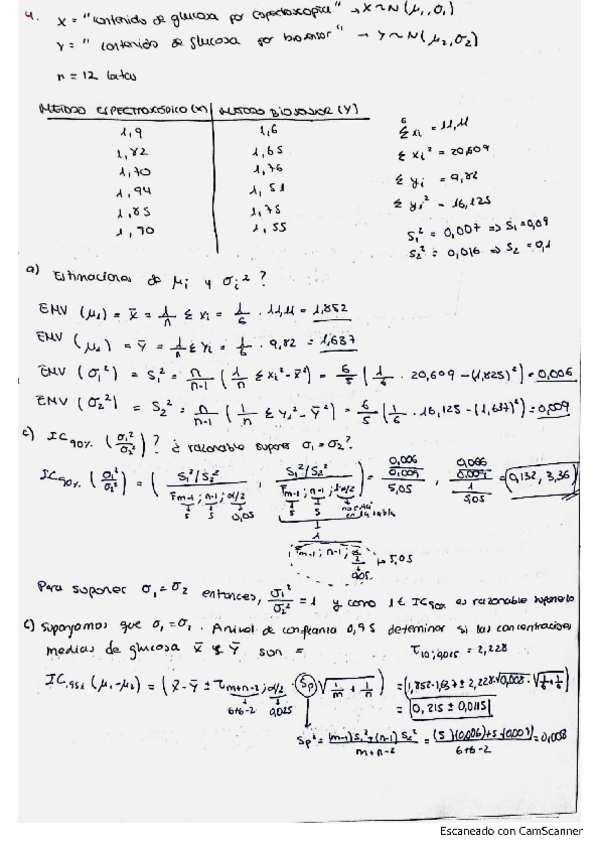 4. X = "contenido de glucosa por espectoscopica" → X~N(μ₁, σ₁)
Y = "contenido de glucosa por biosensor" → Y~N(μ₂, σ₂)
n = 12 latas
METODO ESPECTROSCÓPICO (X) METODO BIOSENSOR (Y)
1,9 1,6
1,82 1,65
1,70 1,76
1,94 1,51
1,85 1,75
1,70 1,55
Σ xi = 11,11
Σ xi² = 20,609
Σ yi = 9,82
Σ yi² = 16,125
S₁² = 0,007 ⇒ S₁=0,09
S₂² = 0,016 ⇒ S₂ = 0,1
a) Estimaciones de μi y σi²?
EMV (μ₁) = x̄ = 1/n Σ xi = 1/6 · 11,11 = 1,852
EMV (μ₂) = ȳ = 1/n Σ yi = 1/6 · 9,82 = 1,637
EMV (σ₁²) = S₁² = n/n-1 (1/n Σ xi² - x̄²) = 6/5 (1/6 · 20,609 - (1,825)²) = 0,006
EMV (σ₂²) = S₂² = n/n-1 (1/n Σ yi² - ȳ²) = 6/5 (1/6 · 16,125 - (1,637)²) = 0,009
c) IC90% (σ₁²/σ₂²)? ¿ razonable suponer σ₁ = σ₂?
IC90% (σ₁²/σ₂²) = (S₁²/S₂² / Fm-1; n-1; α/2 , S₁²/S₂² / Fm-1; n-1; 1-α/2) = 0,006/0,009 / 5,05 , 0,006/0,009 / 1/5,05 = (0,132, 3,36)
5 5 0,05 5 5 no está en la tabla
1 / Fm-1; n-1; α/2 → 5,05
0,05
Para suponer σ₁ = σ₂ entonces, σ₁²/σ₂² = 1 y como 1 ∈ IC90% es razonable suponerlo
c) Supongamos que σ₁ = σ₂. A nivel de confianza 0,95 determinar si las concentraciones
medias de glucosa X̄ e Ȳ son =
τ10; 0,025 = 2,228
IC95% (μ₁-μ₂) = (x̄ - ȳ ± τm+n-2; α/2 · Sp √1/m + 1/n) = (1,852-1,637 ± 2,228·√0,008 · √1/6+1/6)
6+6-2 0,025 = 0,215 ± 0,0115
Sp² = (m-1)S₁² + (n-1) S₂² / m+n-2 = (5)(0,006)+5·(0,009) / 6+6-2 = 0,008
Escaneado con CamScanner